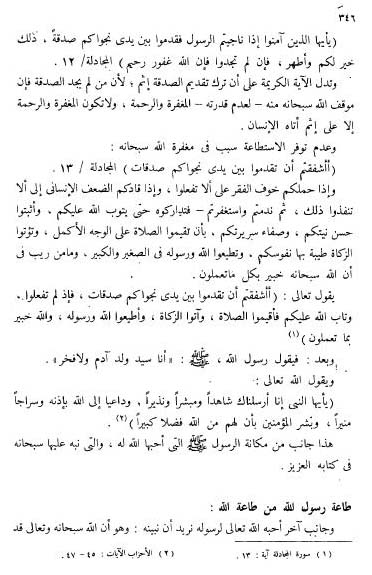 ٣٤٦
(يأيها الذين آمنوا إذا ناجيتم الرسول فقدموا بين يدى نجواكم صدقةً ، ذلك
خير لكم وأطهر ، فإن لم تجدوا فإن الله غفور رحيم) المجادلة/ ١٢ .
وتدل الآية الكريمة على أن ترك تقديم الصدقة إثم ؛ لأن من لم يجد الصدقة فإن
موقف الله سبحانه منه – لعدم قدرته – المغفرة والرحمة ، ولاتكون المغفرة والرحمة
إلا على إثم أتاه الإنسان .
وعدم توفر الاستطاعة سبب فى مغفرة الله سبحانه :
(أأشفقتم أن تقدموا بين يدى نجواكم صدقات) المجادلة / ١٣ .
وإذا حملكم خوف الفقر على ألا تفعلوا ، وإذا قادكم الضعف الإنسانى إلى ألا
تنفذوا ذلك ، ثم ندمتم واستغفرتم – فتداركوه حتى يتوب الله عليكم . وأثبتوا
حسن نيتكم ، وصفاء سريرتكم ، بأن تقيموا الصلاة على الوجه الأكمل ، وتؤتوا
الزكاة طيبة بها نفوسكم . وتطيعوا الله ورسوله فى الصغير والكبير ، ومامن ريب فى
أن الله سبحانه خبير بكل ماتعملون .
يقول تعالى : (أأشفقتم أن تقدموا بين يدى نجواكم صدقات ، فإذ لم تفعلوا ،
وتاب الله عليكم فأقيموا الصلاة ، وآتوا الزكاة ، وأطيعوا الله ورسوله ، والله خبير
بما تعملون )(١)
وبعد : فيقول رسول الله ، ﷺ : «أنا سيد ولد آدم ولافخر» .
ويقول الله تعالى :
(يأيها النبى إنا أرسلناك شاهداً ومبشراً ونذيراً ، وداعيا إلى الله بإذنه وسراجاً
منيراً ، وبشر المؤمنين بأن لهم من الله فضلا كبيراً )(٢) .
هذا جانب من مكانة الرسول ﷺ التى أحبها الله له ، والتى نبه عليها سبحانه
فى كتابه العزيز .
طاعة رسول الله من طاعة الله :
وجانب آخر أحبه الله تعالى لرسوله نريد أن نبينه : وهو أن الله سبحانه وتعالى قد
(١) سورة المجادلة آية : ١٣ . (٢) الأحزاب الآيات : ٤٥ – ٤٧ .